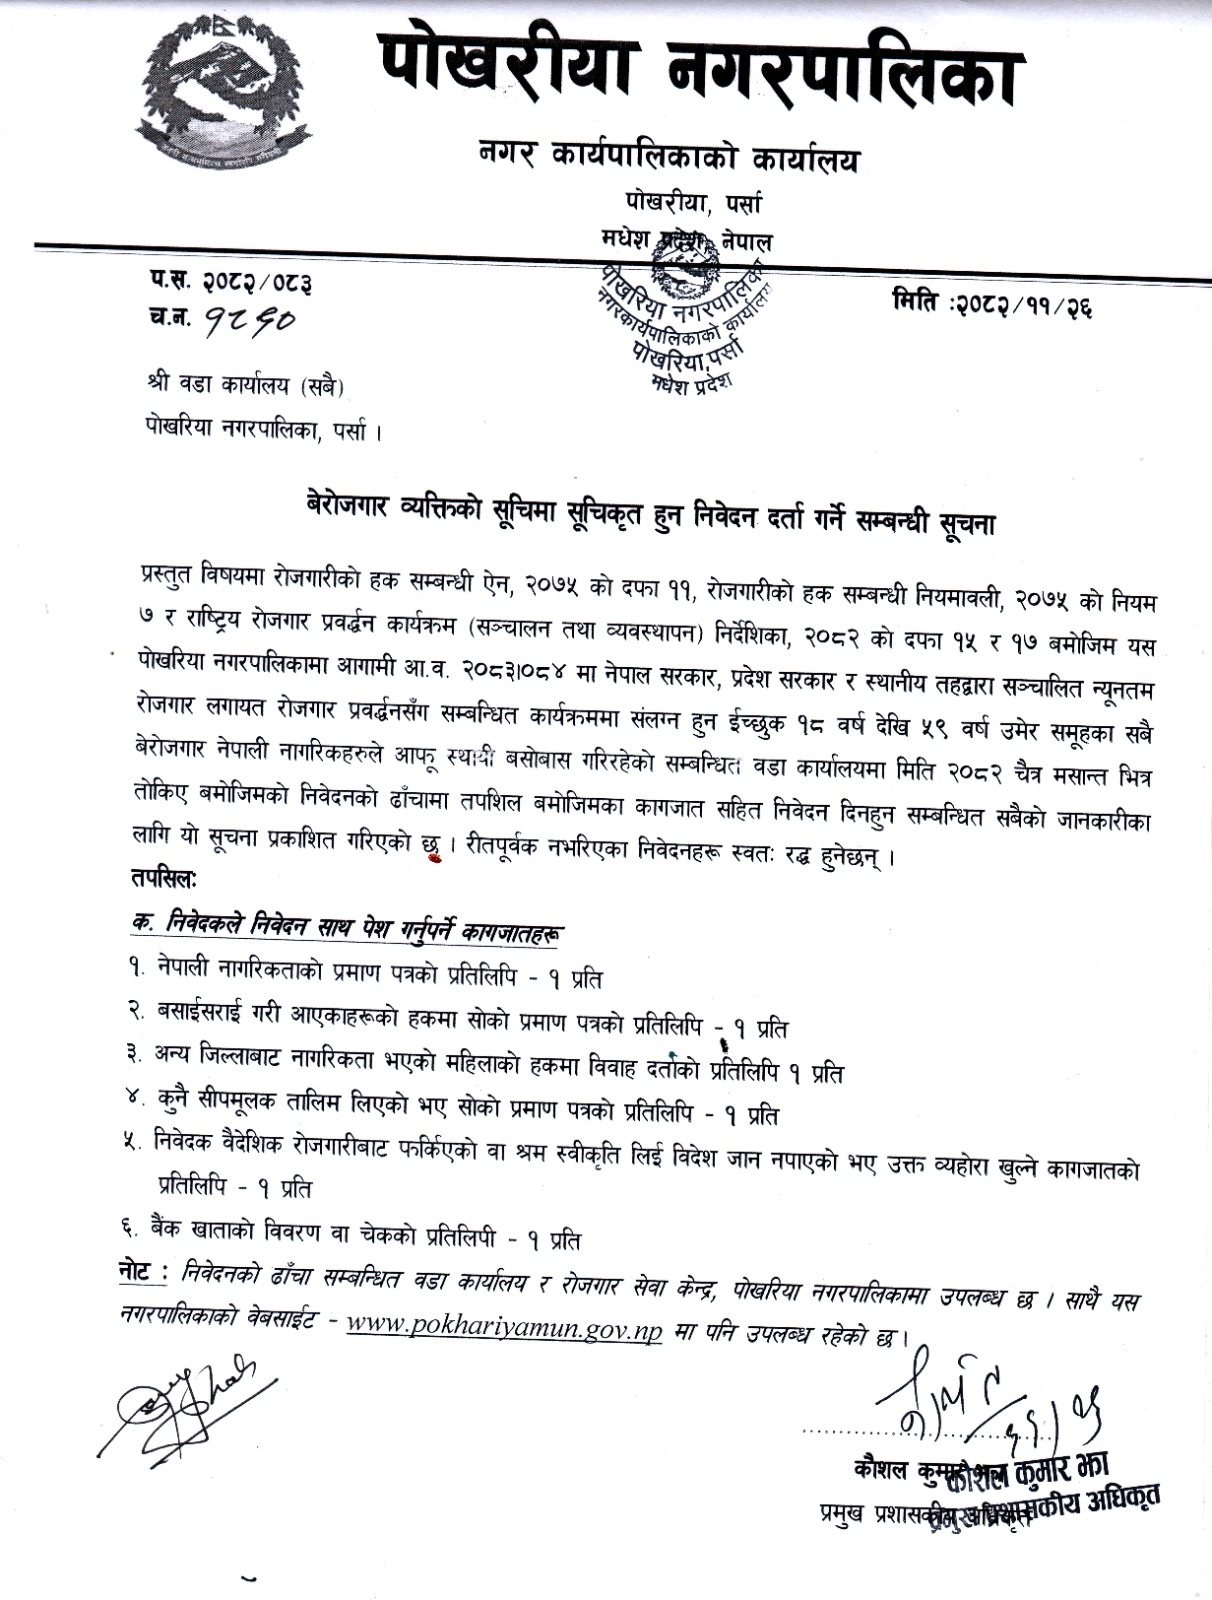 पोखरीया नगरपालिका
नगर कार्यपालिकाको कार्यालय
पोखरीया, पर्सा
मधेश प्रदेश, नेपाल
प.स. २०८२/०८३
मिति :२०८२/११/२६
च.न. १२९०
पोखरिया नगरपालिका
नगरकार्यपालिकाको कार्यालय
पोखरिया,पर्सा
मधेश प्रदेश
श्री वडा कार्यालय (सबै)
पोखरिया नगरपालिका, पर्सा ।
बेरोजगार व्यक्तिको सूचिमा सूचिकृत हुन निवेदन दर्ता गर्ने सम्बन्धी सूचना
प्रस्तुत विषयमा रोजगारीको हक सम्बन्धी ऐन, २०७५ को दफा ११, रोजगारीको हक सम्बन्धी नियमावली, २०७५ को नियम
७ र राष्ट्रिय रोजगार प्रवर्द्धन कार्यक्रम (सञ्चालन तथा व्यवस्थापन) निर्देशिका, २०८२ को दफा १५ र १७ बमोजिम यस
पोखरिया नगरपालिकामा आगामी आ.व. २०८३।०८४ मा नेपाल सरकार, प्रदेश सरकार र स्थानीय तहद्वारा सञ्चालित न्यूनतम
रोजगार लगायत रोजगार प्रवर्द्धनसँग सम्बन्धित कार्यक्रममा संलग्न हुन ईच्छुक १८ वर्ष देखि ५९ वर्ष उमेर समूहका सबै
बेरोजगार नेपाली नागरिकहरुले आफू स्थायी बसोबास गरिरहेको सम्बन्धित वडा कार्यालयमा मिति २०८२ चैत्र मसान्त भित्र
तोकिए बमोजिमको निवेदनको ढाँचामा तपशिल बमोजिमका कागजात सहित निवेदन दिनहुन सम्बन्धित सबैको जानकारीका
लागि यो सूचना प्रकाशित गरिएको छु । रीतपूर्वक नभरिएका निवेदनहरू स्वतः रद्ध हुनेछन् ।
तपसिलः
क. निवेदकले निवेदन साथ पेश गर्नुपर्ने कागजातहरू
१. नेपाली नागरिकताको प्रमाण पत्रको प्रतिलिपि - १ प्रति
२. बसाईसराई गरी आएकाहरूको हकमा सोको प्रमाण पत्रको प्रतिलिपि - १ प्रति
३. अन्य जिल्लाबाट नागरिकता भएको महिलाको हकमा विवाह दर्ताको प्रतिलिपि १ प्रति
४. कुनै सीपमूलक तालिम लिएको भए सोको प्रमाण पत्रको प्रतिलिपि - १ प्रति
५. निवेदक वैदेशिक रोजगारीबाट फर्किएको वा श्रम स्वीकृति लिई विदेश जान नपाएको भए उक्त व्यहोरा खुल्ने कागजातको
प्रतिलिपि - १ प्रति
६. बैंक खाताको विवरण वा चेकको प्रतिलिपी - १ प्रति
नोट : निवेदनको ढाँचा सम्बन्धित वडा कार्यालय र रोजगार सेवा केन्द्र, पोखरिया नगरपालिकामा उपलब्ध छ । साथै यस
नगरपालिकाको वेबसाईट - www.pokhariyamun.gov.np मा पनि उपलब्ध रहेको छ ।
कौशल कुमार झा
कौशल कुमार झा
प्रमुख प्रशासकीय अधिकृत
प्रमुख प्रशासकीय अधिकृत